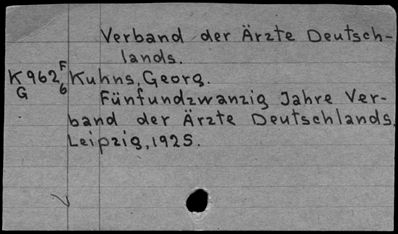 Verband der Ärzte Deutsch-
lands.
K962 F Kuhns, Georg.
G 6 Fünfundzwanzig Jahre Ver-
band der Ärzte Deutschlands,
Leipzig, 1925.